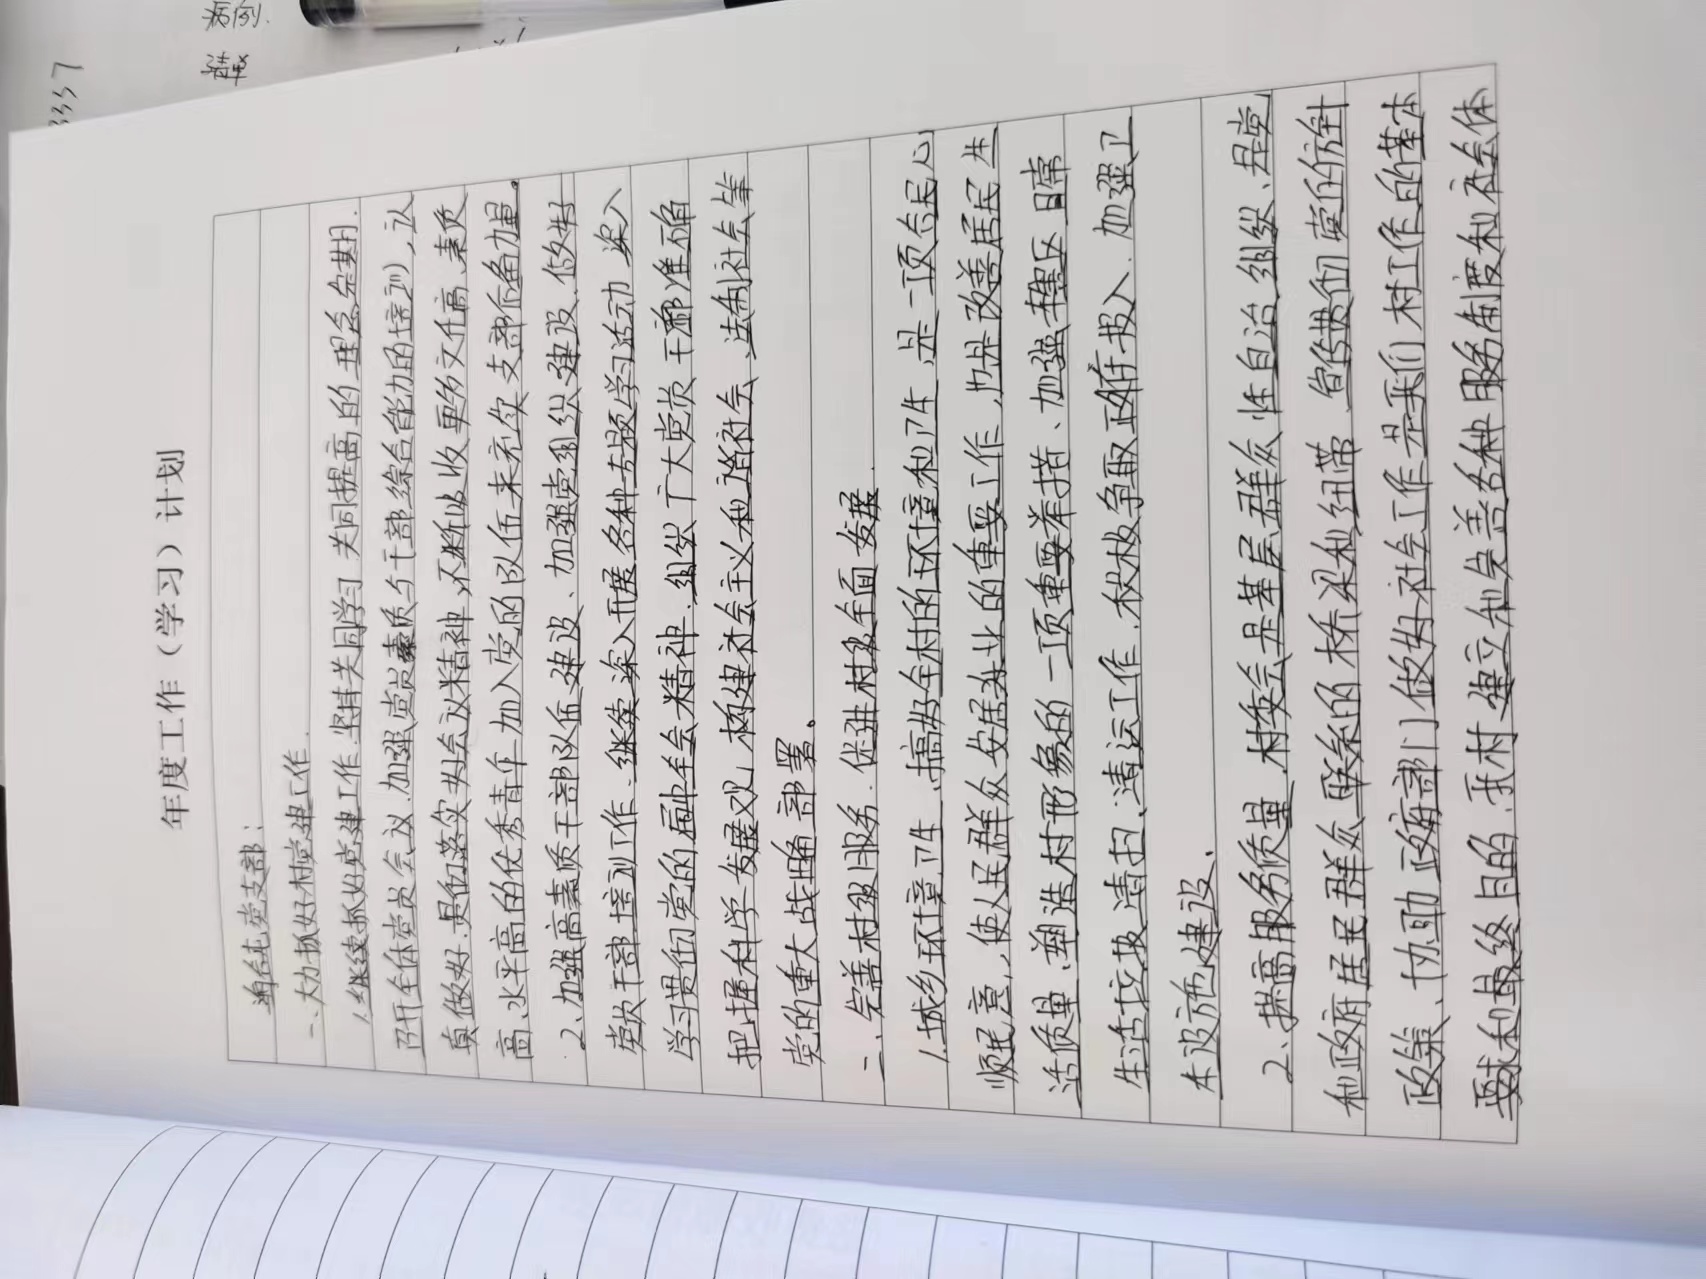 病例.
3357
年度工作（学习）计划
党支部：
一、大力抓好村党建工作.
1.继续抓好党建工作.坚持共同学习 共同提高的理念.定期.
召开全体党员会议.加强党员素质与干部综合能力的培训,认
真做好.贯彻落实好会议精神,不断吸收更多文升高、素质
高、水平高的优秀青年加入党的队伍来充实支部后备力量。
2、加强高素质干部队伍建设、加强党组织建设.做好
党员干部培训工作.继续深入开展各种专题学习活动.深入
学习贯彻党的届中全会精神.组织广大党员干部准确
把握科学发展观,构建社会主义和谐社会、法制社会等
党的重大战略部署。
二、完善村级服务.促进村级全面发展.
1.城乡环境卫生、搞好全村的环境和卫生,是一项合民心
顺民意,使人民群众安居乐业的重要工作,也是改善居民生
活质量、塑造村形象的一项重要举措、加强辖区日常
生活垃圾清扫、清运工作.积极争取政府投入.加强卫
生设施建设、
2、提高服务质量.村委会是基层群众性自治组织、是党
和政府居民群众联系的桥梁和纽带.宣传贯彻党的方针
政策、协助政府部门做好社会工作是我们村工作的基本
要求和最终目的.我村建立和完善各种服务制度和社会体